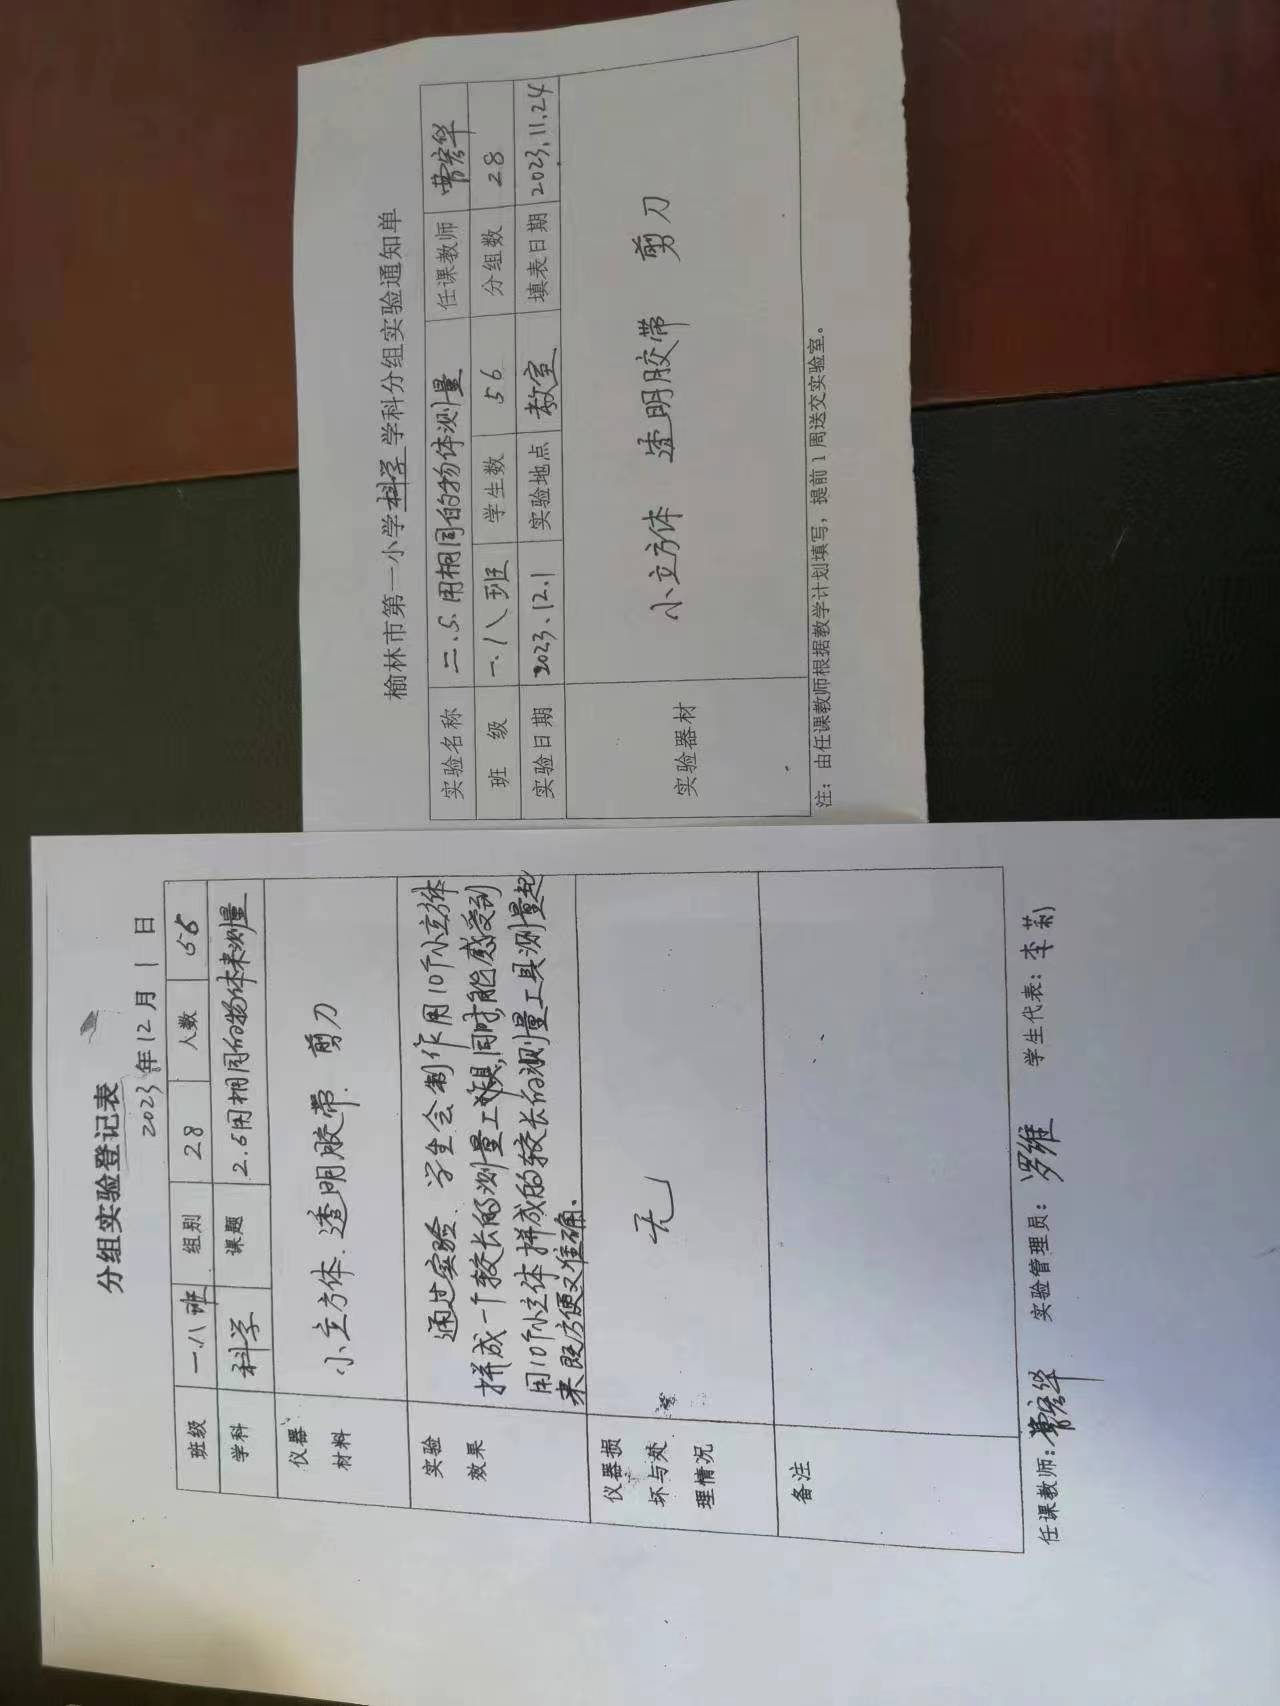 分组实验登记表
2023年12月1日
班级 一.八班 组别 28 人数 56
学科 科学 课题 2.5用相同的物体来测量
仪器材料 小立方体.透明胶带.剪刀
实验效果 通过实验、学生会制作用10个小立方体
拼成一个较长的测量工具,同时,能感受到
用10个小立体拼成的较长的测量工具测量起
来既方便又准确.
仪器损坏与处理情况 无
备注
任课教师: 实验管理员: 罗维 学生代表: 李莉
榆林市第一小学科学学科分组实验通知单
实验名称 二.5.用相同的物体测量 任课教师
班 级 一.八班 学生数 56 分组数 28
实验日期 2023.12.1 实验地点 教室 填表日期 2023.11.24
实验器材 小立方体 透明胶带 剪刀
注：由任课教师根据教学计划填写，提前1周送交实验室。